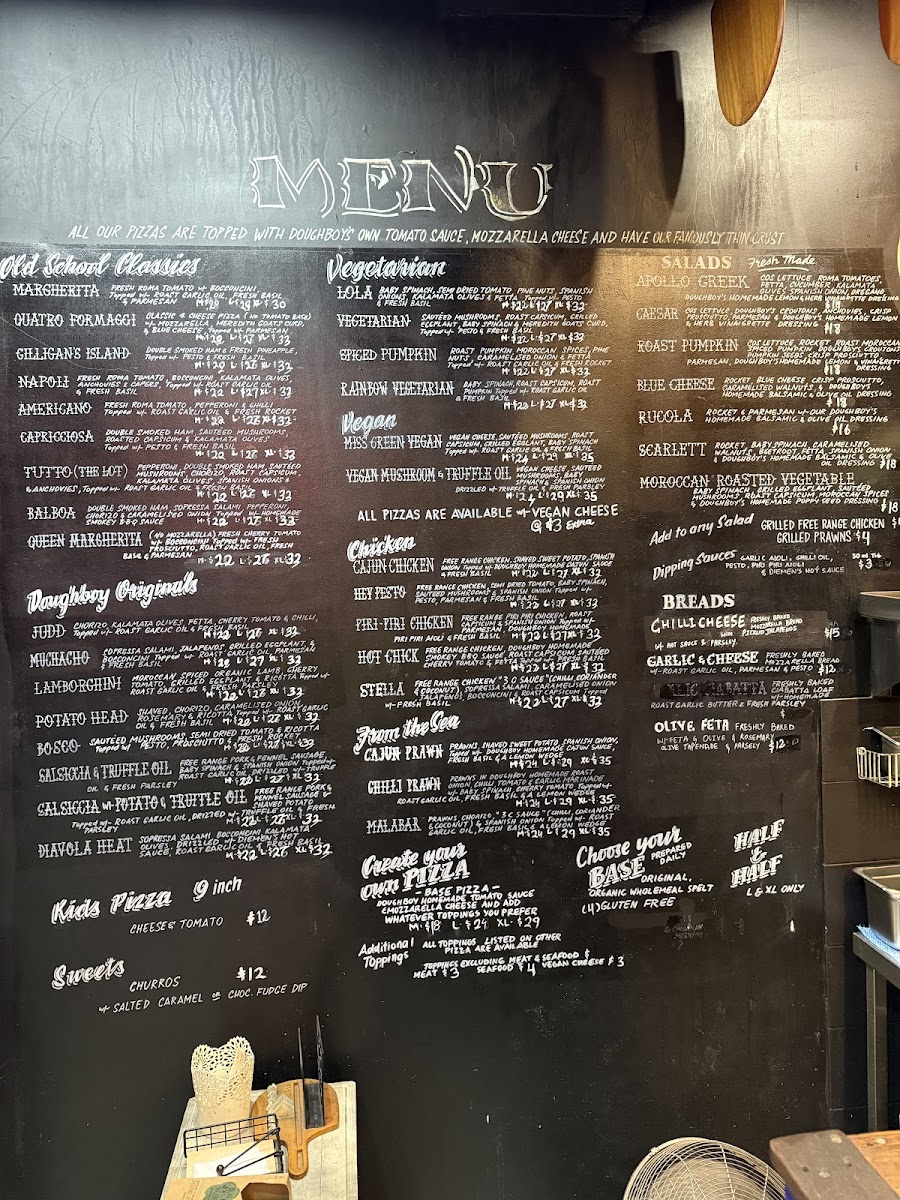 MENU
ALL OUR PIZZAS ARE TOPPED WITH DOUGHBOYS' OWN TOMATO SAUCE, MOZZARELLA CHEESE AND HAVE OUR FAMOUSLY THIN CRUST
Old School Classics
MARGHERITA FRESH ROMA TOMATO w/ BOCCONCINI
Topped w/- ROAST GARLIC OIL, FRESH BASIL
& PARMESAN
QUATRO FORMAGGI CLASSIC 4 CHEESE PIZZA (NO TOMATO BASE)
w/- MOZZARELLA, MEREDITH GOATS CURD,
& BLUE CHEESE, Topped w/- PARMESAN
GILLIGAN'S ISLAND DOUBLE SMOKED HAM & FRESH PINEAPPLE,
Topped w/- PESTO & FRESH BASIL
NAPOLI FRESH ROMA TOMATO, BOCCONCINI, KALAMATA OLIVES,
ANCHOVIES & CAPERS, Topped w/- ROAST GARLIC OIL
& FRESH BASIL M-$22 L-$27 XL-$32
AMERICANO FRESH ROMA TOMATO, PEPPERONI & CHILLI
Topped w/- ROAST GARLIC OIL & FRESH ROCKET
CAPRICCIOSA DOUBLE SMOKED HAM, SAUTÉED MUSHROOMS,
ROASTED CAPSICUM & KALAMATA OLIVES
Topped w/- PESTO & FRESH BASIL
M-$22 L-$27 XL-$32
TUTTO (THE LOT) PEPPERONI, DOUBLE SMOKED HAM, SAUTÉED
MUSHROOMS, CHORIZO, ROAST CAPSICUM,
KALAMATA OLIVES, SPANISH ONIONS &
& ANCHOVIES, Topped w/- ROAST GARLIC OIL & FRESH BASIL
M-$22 L-$27 XL-$32
BALBOA DOUBLE SMOKED HAM, SOPRESSA SALAMI, PEPPERONI,
CHORIZO & CARAMELISED ONION Topped w/- HOMEMADE
SMOKEY BBQ SAUCE M-$22 L-$27 XL-$32
QUEEN MARGHERITA (NO MOZZARELLA) FRESH CHERRY TOMATO
w/- BOCCONCINI Topped w/- FRESH
PROSCIUTTO, ROAST GARLIC OIL, FRESH
BASIL & PARMESAN M-$22 L-$27 XL-$32
Doughboy Originals
JUDD CHORIZO, KALAMATA OLIVES, FETTA, CHERRY TOMATO & CHILLI,
Topped w/- ROAST GARLIC OIL & FRESH BASIL
MUCHACHO SOPRESSA SALAMI, JALAPENOS, GRILLED EGGPLANT, &
BOCCONCINI Topped w/- ROAST GARLIC OIL, PARMESAN
& FRESH BASIL
LAMBORGHINI MOROCCAN SPICED ORGANIC LAMB, CHERRY
TOMATO, GRILLED EGGPLANT & RICOTTA Topped w/-
ROAST GARLIC OIL & FRESH PARSLEY
POTATO HEAD SHAVED, CHORIZO, CARAMELISED ONION,
ROSEMARY & RICOTTA Topped w/- ROAST GARLIC
OIL & FRESH BASIL
BOSCO SAUTÉED MUSHROOMS, SEMI DRIED TOMATO & RICOTTA
Topped w/- PESTO, PROSCIUTTO & FRESH ROCKET
SALSICCIA & TRUFFLE OIL FREE RANGE PORK & FENNEL SAUSAGE,
BABY SPINACH & SPANISH ONION Topped w/-
ROAST GARLIC OIL, DRIZZLED w/- TRUFFLE
OIL & FRESH PARSLEY
SALSICCIA w/- POTATO & TRUFFLE OIL FREE RANGE PORK &
FENNEL SAUSAGE &
SHAVED POTATO
Topped w/- ROAST GARLIC OIL, DRIZZLED w/- TRUFFLE OIL & FRESH
PARSLEY
DIAVOLA HEAT SOPRESSA SALAMI, BOCCONCINI, KALAMATA
OLIVES, DRIZZLED w/- DIEMEN'S HOT
SAUCE, ROAST GARLIC OIL & FRESH BASIL
Kids Pizza 9 inch
CHEESE & TOMATO $12
Sweets
CHURROS $12
w/- SALTED CARAMEL OR CHOC. FUDGE DIP
Vegetarian
LOLA BABY SPINACH, SEMI DRIED TOMATO, PINE NUTS, SPANISH
ONIONS, KALAMATA OLIVES & FETTA, Topped w/- PESTO
& FRESH BASIL M-$22 L-$27 XL-$32
VEGETARIAN SAUTÉED MUSHROOMS, ROAST CAPSICUM, GRILLED
EGGPLANT, BABY SPINACH & MEREDITH GOATS CURD,
Topped w/- PESTO & FRESH BASIL
M-$22 L-$27 XL-$32
SPICED PUMPKIN ROAST PUMPKIN, MOROCCAN SPICES, PINE
NUTS, CARAMELISED ONION & FETTA
Topped w/- ROAST GARLIC OIL & FRESH ROCKET
M-$22 L-$27 XL-$32
RAINBOW VEGETARIAN BABY SPINACH, ROAST CAPSICUM, ROAST
PUMPKIN Topped w/- ROAST GARLIC OIL
& FRESH BASIL
M-$22 L-$27 XL-$32
Vegan
MISS GREEN VEGAN VEGAN CHEESE, SAUTÉED MUSHROOMS, ROAST
CAPSICUM, GRILLED EGGPLANT, BABY SPINACH
Topped w/- ROAST GARLIC OIL & FRESH BASIL
M-$24 L-$29 XL-$35
VEGAN MUSHROOM & TRUFFLE OIL VEGAN CHEESE, SAUTÉED
MUSHROOMS, BABY
SPINACH & SPANISH ONION
DRIZZLED w/- TRUFFLE OIL & FRESH PARSLEY
M-$24 L-$29 XL-$35
ALL PIZZAS ARE AVAILABLE w/- VEGAN CHEESE
@ $3 Extra
Chicken
CAJUN CHICKEN FREE RANGE CHICKEN, SHAVED SWEET POTATO, SPANISH
ONION Topped w/- DOUGHBOY HOMEMADE CAJUN SAUCE
& FRESH BASIL M-$22 L-$27 XL-$32
HEY PESTO FREE RANGE CHICKEN, SEMI DRIED TOMATO, BABY SPINACH,
SAUTÉED MUSHROOMS & SPANISH ONION Topped w/-
PESTO, PARMESAN & FRESH BASIL
M-$22 L-$27 XL-$32
PIRI-PIRI CHICKEN FREE RANGE PIRI PIRI CHICKEN, ROAST
CAPSICUM, SPANISH ONION Topped w/-
DOUGHBOY HOMEMADE
PIRI PIRI AIOLI & FRESH BASIL M-$22 L-$27 XL-$32
HOT CHICK FREE RANGE CHICKEN, DOUGHBOY HOMEMADE
SMOKEY BBQ SAUCE, ROAST CAPSICUM, SAUTÉED
CHERRY TOMATO
STELLA FREE RANGE CHICKEN "3 C SAUCE" (CHILLI, CORIANDER
& COCONUT), SOPRESSA SALAMI, CARAMELISED ONION
JALAPENOS, BOCCONCINI & ROAST CAPSICUM Topped
w/- FRESH BASIL M-$22 L-$27 XL-$32
From the Sea
CAJUN PRAWN PRAWNS, SHAVED SWEET POTATO, SPANISH ONION,
Topped w/- DOUGHBOY HOMEMADE CAJUN SAUCE,
FRESH BASIL & A LEMON WEDGE
M-$24 L-$29 XL-$35
CHILLI PRAWN PRAWNS IN DOUGHBOY HOMEMADE ROAST
ONION, CHILLI TOMATO & GARLIC MARINADE
w/- BABY SPINACH, CHERRY TOMATO, Topped w/-
ROAST GARLIC OIL, FRESH BASIL & A LEMON WEDGE
M-$24 L-$29 XL-$35
MALABAR PRAWNS, CHORIZO, "3 C SAUCE" (CHILLI, CORIANDER
& COCONUT) & SPANISH ONION Topped w/- ROAST
GARLIC OIL, FRESH BASIL & A LEMON WEDGE
M-$24 L-$29 XL-$35
Create your
own PIZZA
- BASE PIZZA -
DOUGHBOY HOMEMADE TOMATO SAUCE
& MOZZARELLA CHEESE AND ADD
WHATEVER TOPPINGS YOU PREFER
M-$18 L-$24 XL-$29
Additional Toppings ALL TOPPINGS LISTED ON OTHER
PIZZA ARE AVAILABLE
TOPPINGS EXCLUDING MEAT & SEAFOOD $
MEAT $3 SEAFOOD $4 VEGAN CHEESE $3
Choose your
BASE PREPARED DAILY
ORIGINAL,
ORGANIC WHOLEMEAL SPELT
(4) GLUTEN FREE
HALF
&
HALF
L & XL ONLY
SALADS Fresh Made
APOLLO GREEK COS LETTUCE, ROMA TOMATOES
FETTA, CUCUMBER, KALAMATA
OLIVES, SPANISH ONION, OREGANO
DOUGHBOY'S HOMEMADE LEMON & HERB VINAIGRETTE DRESSING
$18
CAESAR COS LETTUCE, DOUGHBOY'S CROUTONS, ANCHOVIES, CRISP
PROSCIUTTO, PARMESAN & DOUGHBOY'S HOMEMADE LEMON
& HERB VINAIGRETTE DRESSING
$18
ROAST PUMPKIN COS LETTUCE, ROCKET, ROAST MOROCCAN
SPICED PUMPKIN, DOUGHBOY'S CROUTONS
PUMPKIN SEEDS, CRISP PROSCIUTTO
PARMESAN, DOUGHBOY'S HOMEMADE LEMON & VINAIGRETTE
$18 DRESSING
BLUE CHEESE ROCKET, BLUE CHEESE, CRISP PROSCIUTTO,
CARAMELISED WALNUTS & DOUGHBOY'S
HOMEMADE BALSAMIC & OLIVE OIL DRESSING
$18
RUCOLA ROCKET & PARMESAN w/- OUR DOUGHBOY'S
HOMEMADE BALSAMIC & OLIVE OIL DRESSING
$16
SCARLETT ROCKET, BABY SPINACH, CARAMELISED
WALNUTS, BEETROOT, FETTA, SPANISH ONION
& DOUGHBOY'S HOMEMADE BALSAMIC & OLIVE
OIL DRESSING $18
MOROCCAN ROASTED VEGETABLE
BABY SPINACH, GRILLED EGGPLANT, SAUTÉED
MUSHROOMS, ROAST CAPSICUM, MOROCCAN SPICES
& DOUGHBOY'S HOMEMADE POPPY SEED DRESSING
$18
Add to any Salad GRILLED FREE RANGE CHICKEN
GRILLED PRAWNS $4
Dipping Sauces GARLIC AIOLI, CHILLI OIL,
PESTO, PIRI PIRI AIOLI
& DIEMEN'S HOT SAUCE $3
BREADS
CHILLI CHEESE FRESHLY BAKED
MOZZARELLA BREAD
WITH
PICKLED JALAPENOS
w/- HOT SAUCE & PARSLEY $15
GARLIC & CHEESE FRESHLY BAKED
MOZZARELLA BREAD
w/- ROAST GARLIC OIL, PARMESAN & PESTO $12
GARLIC CIABATTA FRESHLY BAKED
CIABATTA LOAF
w/- HOMEMADE
ROAST GARLIC BUTTER & FRESH PARSLEY
OLIVE FETA FRESHLY BAKED
W/- FETA & OLIVE & ROSEMARY
OLIVE TAPENADE & PARSLEY